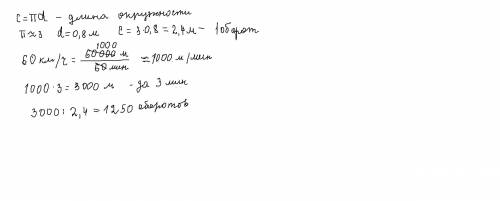 C=πd – длина окружности
π≈3 d=0,8 м C = 3·0,8 = 2,4 м – 1 оборот
60 км/ч = 60 000 м / 60 мин = 1000 м/мин
1000
1000·3 = 3000 м - за 3 мин
3000 : 2,4 = 1250 оборотов